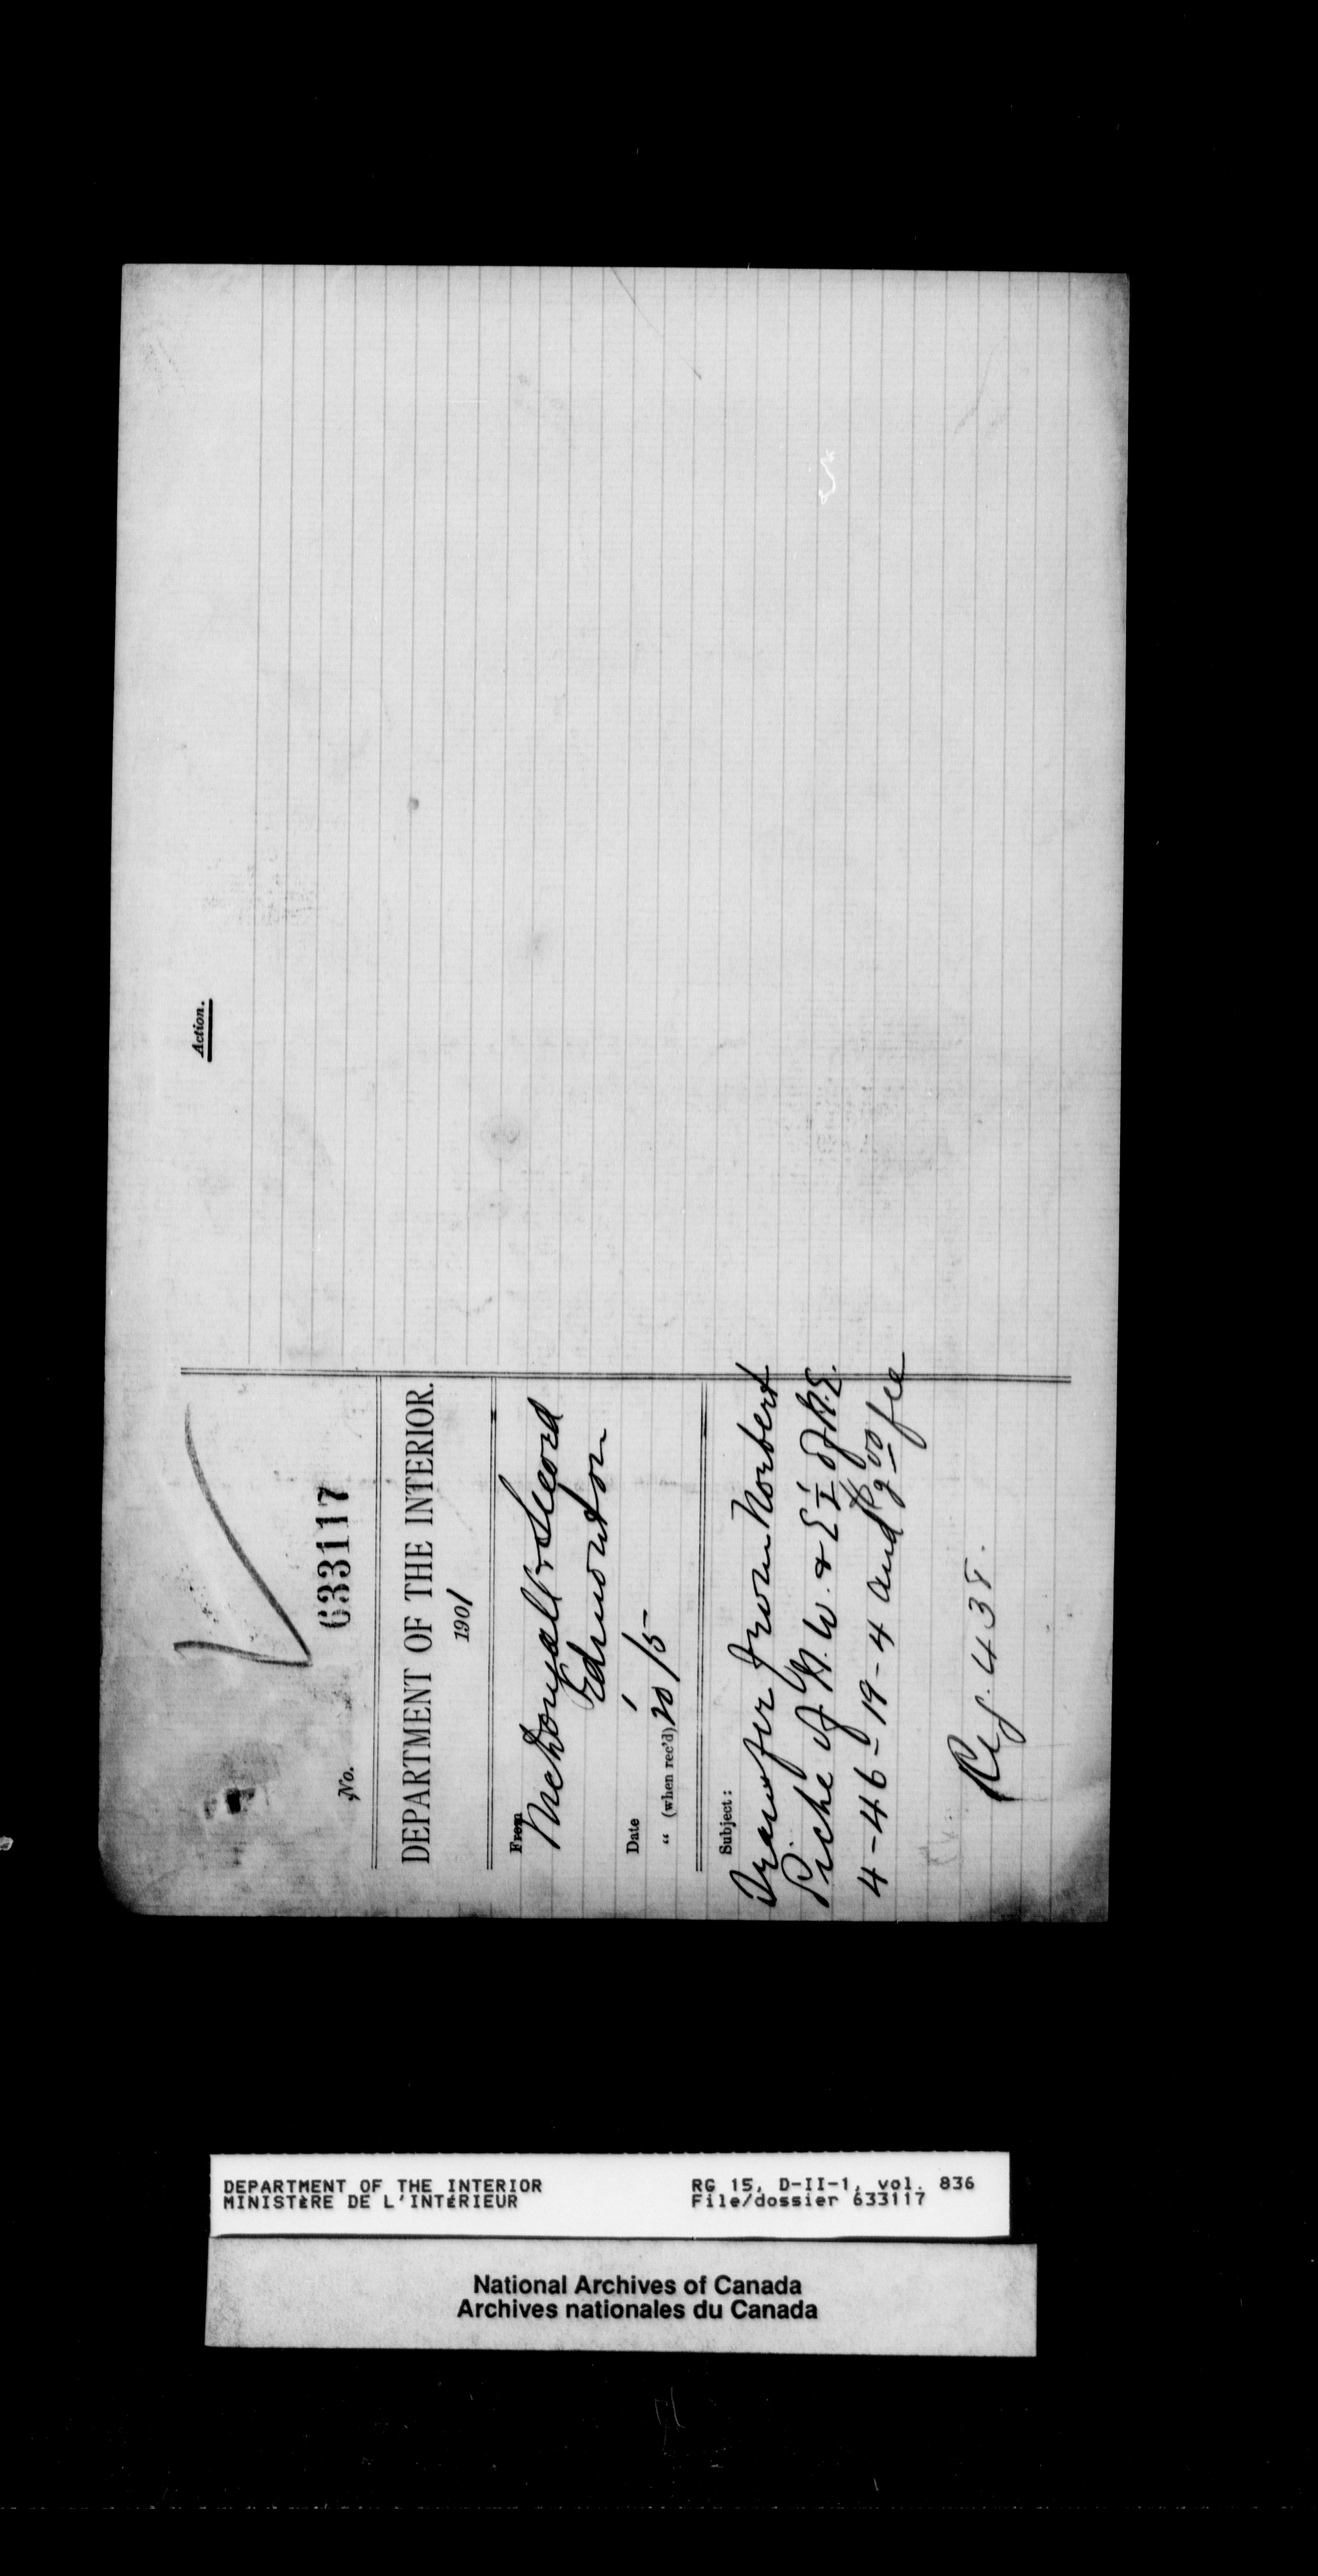 Action.
No. 633117
DEPARTMENT OF THE INTERIOR.
1901
From
McDougall & Secord
Edmonton
Date
" (when rec'd) 20/5
Subject:
Transfer from Norbert
Piche of N.W. & E ½ of N.E.
4-46-19-4 and $2 00 fee
Reg. 438.
DEPARTMENT OF THE INTERIOR
MINISTÈRE DE L'INTÉRIEUR
RG 15, D-II-1, vol. 836
File/dossier 633117
National Archives of Canada
Archives nationales du Canada